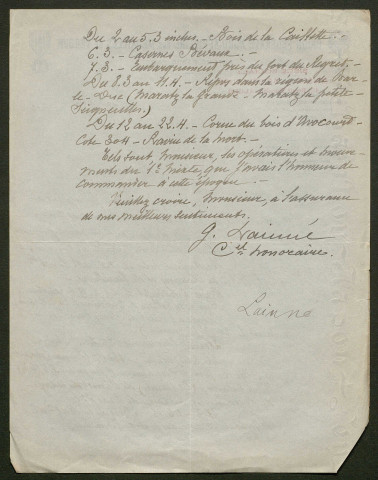 Du 2 au 5.3 inclus. - Bois de la Caillette. -
6.3. - Casernes Bévaux. -
7.3. - Embarquement près du fort du Regret. -
Du 8.3 au 11.4. - Repos dans la région de Bar-
le-Duc (Marats la Grande - Marats la petite -
Seigneulles.)
Du 12 au 22.4. - Corne du bois d'Avocourt -
Cote 304 - Ravin de la mort. -
Tels sont, Monsieur, les opérations et mouve-
ments du 1er mixte que j'avais l'honneur de
commander à cette époque. -
Veuillez croire, Monsieur, à l'assurance
de mes meilleurs sentiments.
G. Lainné
Cel honoraire.
Lainné